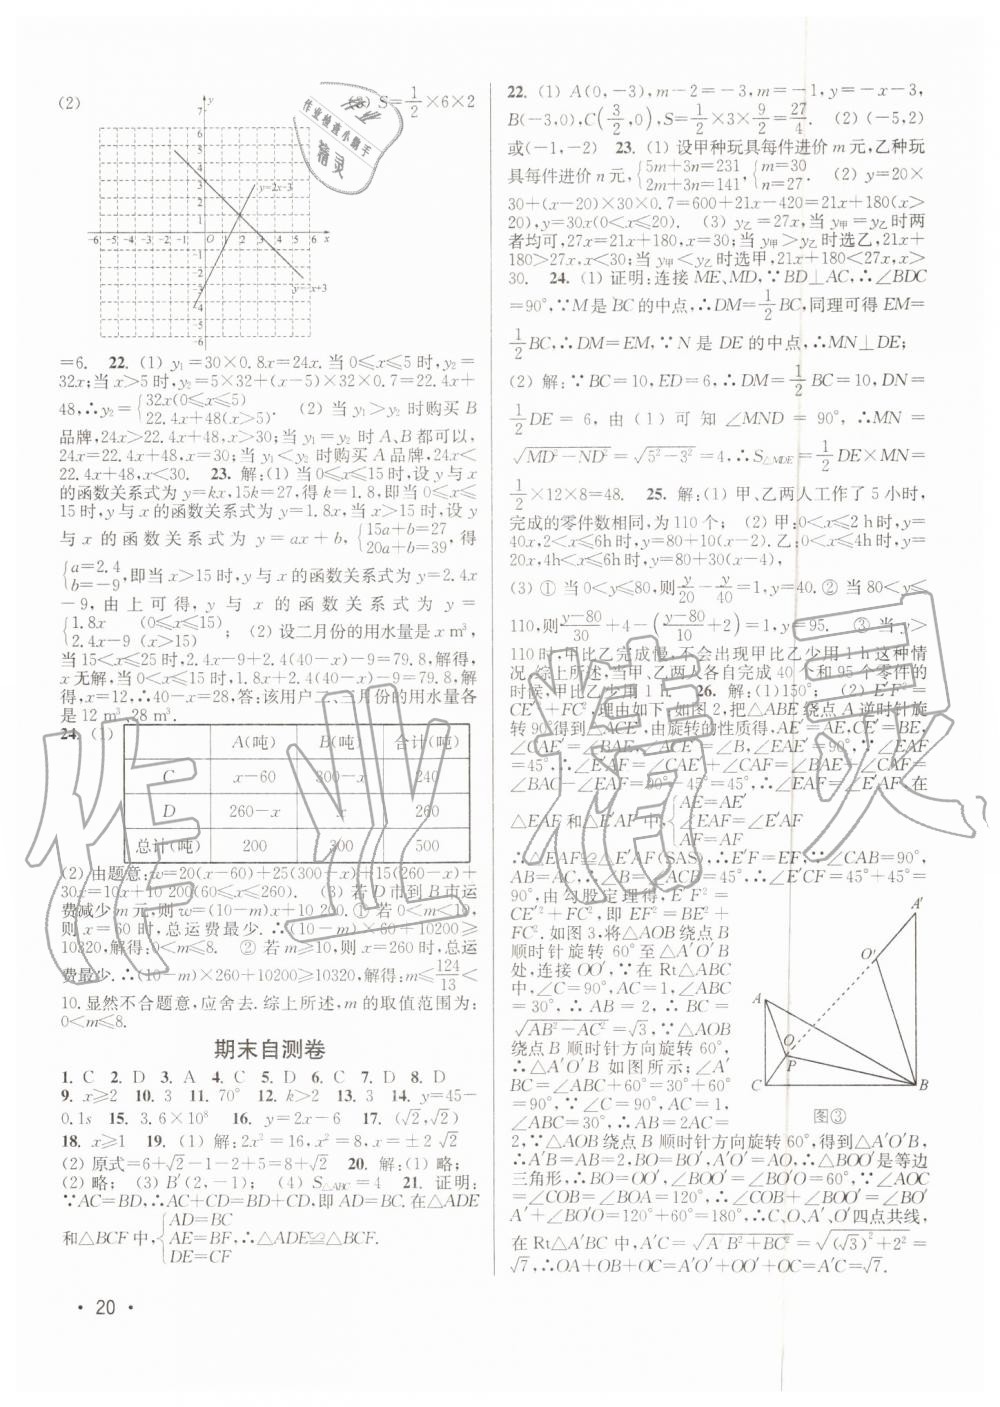 (2)
(3) S=1/2×6×2
作业检查小助手
精灵
y
7
6
5
4
3
2
1
y=2x-3
-6 -5 -4 -3 -2 -1 O 1 2 3 4 5 6 x
-1
-2
-3
-4
-5
-6
y=-x+3
=6. 22. (1) y₁=30×0.8x=24x. 当 0≤x≤5 时,y₂=
32x;当 x>5 时,y₂=5×32+(x-5)×32×0.7=22.4x+
48,∴y₂={32x(0≤x≤5) 22.4x+48(x>5). (2) 当 y₁>y₂ 时购买 B
品牌,24x>22.4x+48,x>30;当 y₁=y₂ 时 A、B 都可以,
24x=22.4x+48,x=30;当 y₁<y₂ 时购买 A 品牌,24x<
22.4x+48,x<30. 23. 解:(1) 当 0≤x≤15 时,设 y 与 x
的函数关系式为 y=kx,15k=27,得 k=1.8,即当 0≤x≤
15 时,y 与 x 的函数关系式为 y=1.8x,当 x>15 时,设 y
与 x 的函数关系式为 y=ax+b,{15a+b=27 20a+b=39, 得
{a=2.4 b=-9,即当 x>15 时,y 与 x 的函数关系式为 y=2.4x
-9,由上可得,y 与 x 的函数关系式为 y=
{1.8x (0≤x≤15) 2.4x-9 (x>15); (2) 设二月份的用水量是 x m³,
当 15<x≤25 时,2.4x-9+2.4(40-x)-9=79.8,解得,
x 无解,当 0≤x≤15 时,1.8x+2.4(40-x)-9=79.8,解
得,x=12,∴40-x=28,答:该用户二、三月份的用水量各
是 12 m³、28 m³.
24. (1)
A(吨) B(吨) 合计(吨)
C x-60 300-x 240
D 260-x x 260
总计(吨) 200 300 500
(2) 由题意:w=20(x-60)+25(300-x)+15(260-x)+
30x=10x+10 200(60≤x≤260). (3) 若 D 市到 B 市运
费减少 m 元,则 w=(10-m)x+10 200.① 若 0<m<10,
则 x=60 时,总运费最少.∴(10-m)×60+10200≥
10320,解得:0<m≤8. ② 若 m≥10,则 x=260 时,总运
费最少.∴(10-m)×260+10200≥10320,解得:m≤124/13<
10.显然不合题意,应舍去.综上所述,m 的取值范围为:
0<m≤8.
期末自测卷
1. C 2. D 3. A 4. C 5. D 6. C 7. D 8. D
9. x≥2 10. 3 11. 70° 12. k>2 13. 3 14. y=45-
0.1s 15. 3.6×10⁸ 16. y=2x-6 17. (√2,√2)
18. x≥1 19. (1) 解:2x²=16,x²=8,x=±2√2
(2) 原式=6+√2-1-2+5=8+√2 20. 解:(1) 略;
(2) 略; (3) B′(2,-1); (4) S△ABC=4 21. 证明:
∵AC=BD,∴AC+CD=BD+CD,即 AD=BC.在△ADE
和△BCF 中,{AD=BC AE=BF, DE=CF ∴△ADE≌△BCF.
· 20 ·
22. (1) A(0,-3),m-2=-3,m=-1,y=-x-3,
B(-3,0),C(3/2,0),S=1/2×3×9/2=27/4. (2) (-5,2)
或(-1,-2) 23. (1) 设甲种玩具每件进价 m 元,乙种玩
具每件进价 n 元,{5m+3n=231 2m+3n=141,{m=30 n=27. (2) y=20×
30+(x-20)×30×0.7=600+21x-420=21x+180(x>
20),y=30x(0<x≤20). (3) y乙=27x,当 y甲=y乙 时两
者均可,27x=21x+180,x=30;当 y甲>y乙 时选乙,21x+
180>27x,x<30;当 y甲<y乙 时选甲,21x+180<27x,x>
30. 24. (1) 证明:连接 ME、MD,∵BD⊥AC,∴∠BDC
=90°,∵M 是 BC 的中点,∴DM=1/2BC,同理可得 EM=
1/2BC,∴DM=EM,∵N 是 DE 的中点,∴MN⊥DE;
(2) 解:∵BC=10,ED=6,∴DM=1/2BC=10,DN=
1/2DE=6,由(1)可知∠MND=90°,∴MN=
√MD²-ND²=√5²-3²=4,∴S△MDE=1/2DE×MN=
1/2×12×8=48. 25. 解:(1) 甲、乙两人工作了 5 小时,
完成的零件数相同,为 110 个; (2) 甲:0<x≤2 h 时,y=
40x,2<x≤6h 时,y=80+10(x-2). 乙:0<x≤4h 时,y=
20x,4h<x≤6h 时,y=80+30(x-4),
(3) ① 当 0<y≤80,则y/20-y/40=1,y=40. ② 当 80<y<
110,则y-80/30+4-(y-80/10+2)=1,y=95. ③ 当 y>
110 时,甲比乙完成慢,不会出现甲比乙少用 1 h 这种情
况.综上所述,当甲、乙两人各自完成 40 个和 95 个零件的
时候,甲比乙少用 1 h. 26. 解:(1)150°; (2) E′F²=
CE′²+FC²,理由如下:如图 2,把△ABE 绕点 A 逆时针旋
转 90°得到△ACE′,由旋转的性质得,AE′=AE,CE′=BE,
∠CAE′=∠BAE,∠ACE′=∠B,∠EAE′=90°,∵∠EAF
=45°,∴∠E′AF=∠CAE′+∠CAF=∠BAE+∠CAF=
∠BAC-∠EAF=90°-45°=45°,∴∠EAF=∠E′AF,在
△EAF 和△E′AF 中,{AE=AE′ ∠EAF=∠E′AF AF=AF
∴△EAF≌△E′AF(SAS),∴E′F=EF,∵∠CAB=90°,
AB=AC,∴∠B=∠ACB=45°,∴∠E′CF=45°+45°=
90°,由勾股定理得,E′F²=
CE′²+FC²,即 EF²=BE²+
FC². 如图 3,将△AOB 绕点 B
顺时针旋转 60°至△A′O′B
处,连接 OO′,∵在 Rt△ABC
中,∠C=90°,AC=1,∠ABC
=30°,∴AB=2,∴BC=
√AB²-AC²=√3,∵△AOB
绕点 B 顺时针方向旋转 60°,
∴△A′O′B 如图所示;∠A′
BC=∠ABC+60°=30°+60°
=90°,∵∠C=90°,AC=1,
∠ABC=30°,∴AB=2AC=
2,∵△AOB 绕点 B 顺时针方向旋转 60°,得到△A′O′B,
∴A′B=AB=2,BO=BO′,A′O′=AO,∴△BOO′是等边
三角形,∴BO=OO′,∠BOO′=∠BO′O=60°,∵∠AOC
=∠COB=∠BOA=120°,∴∠COB+∠BOO′=∠BO′
A′+∠BO′O=120°+60°=180°,∴C、O、A′、O′四点共线,
在 Rt△A′BC 中,A′C=√A′B²+BC²=√(√3)²+2²=
√7,∴OA+OB+OC=A′O′+OO′+OC=A′C=√7.
A′
O′
A
O
P
C
B
图③
作业精灵